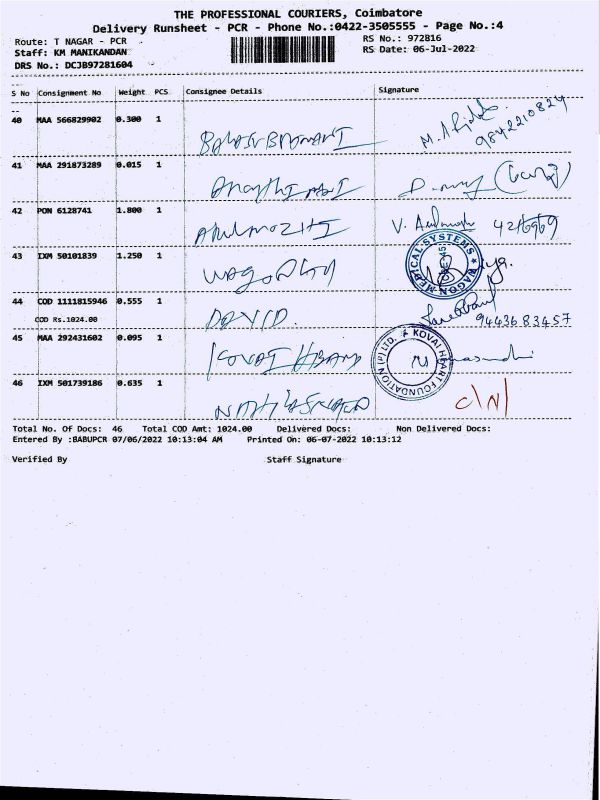 THE PROFESSIONAL COURIERS, Coimbatore
Delivery Runsheet - PCR - Phone No.:0422-3505555 - Page No.:4
Route: T NAGAR - PCR RS No.: 972816
Staff: KM MANIKANDAN RS Date: 06-Jul-2022
DRS No.: DCJB97281604
S No Consignment No Weight PCS Consignee Details Signature
40 MAA 566829902 0.300 1 9842210824
41 MAA 291873289 0.015 1
42 PON 6128741 1.800 1 V.
43 IXM 50101839 1.250 1 WAGON MEDICAL SYSTEMS
44 COD 1111815946 0.555 1 DAVID.
COD Rs.1024.00 9443683457
45 MAA 292431602 0.095 1 KOVAI HEART FOUNDATION (P) LTD.
46 IXM 501739186 0.635 1 C/N/
Total No. Of Docs: 46 Total COD Amt: 1024.00 Delivered Docs: Non Delivered Docs:
Entered By :BABUPCR 07/06/2022 10:13:04 AM Printed On: 06-07-2022 10:13:12
Verified By Staff Signature